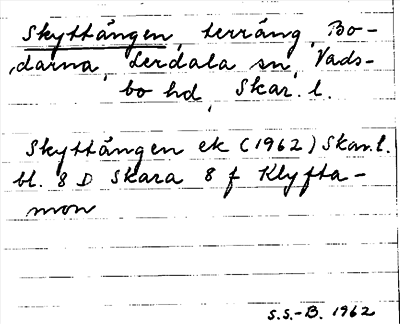 Skyttängen, terräng, Bo-
darna, Lerdala sn, Vads-
bo hd, Skar. l.
Skyttängen ek (1962) Skar. l.
bl. 8 D Skara 8 f Klyfta-
mon
S.S.-B. 1962